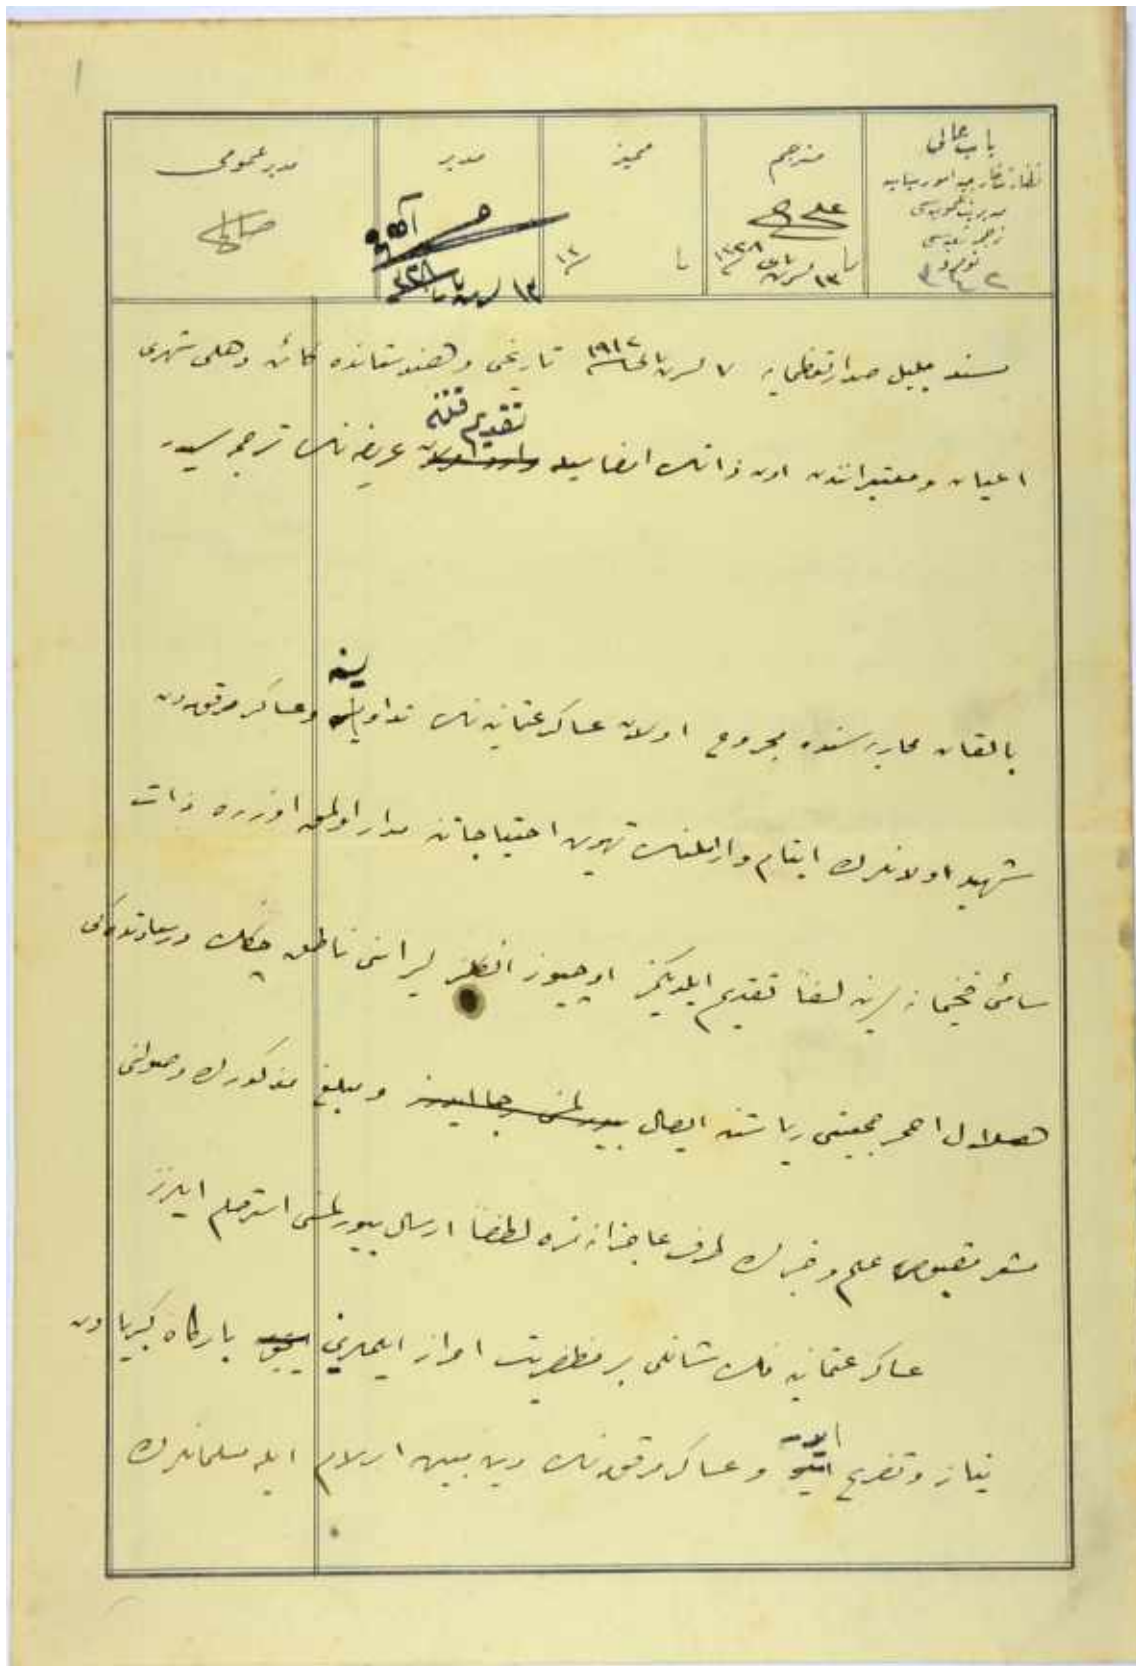 باب عالی
نظارت خارجیه امور سیاسیه
مدیریت عمومیه‌سی
ترجمه شعبه‌سی
نومرو
مترجم
ممیز
مدیر
مدیر عمومی
مسند جلیل صدارتعظمایه ٧ تشرین ثانی ١٩١٢ تاریخی و هندستانده کائن دهلی شهری
اعیان و معتبرانندن اون ذاتك امضاسیله تقدیم قلنه عریضه‌نك ترجمه‌سیدر
بالقان محاربه‌سنده مجروح اولان عساكر عثمانیه‌نك تداویسنه و عساكر مرقومه‌دن
شهید اولانلرك ایتام و اراملنك تهوین احتیاجاتنه مدار اولمق اوزره ذات
سامئ فخیمانه‌لرینه لفاً تقدیم ایلدیكمز اوچیوز انكلیز لیراسنی ناطق چكك درسعادتده‌كی
هلال احمر جمعیتی ریاستنه ایصال و مبلغ مذكورك وصولنی
مشعر مقبوض علم و خبرك طرف عاجزانه‌مزه لطفاً ارسال بیورلمسنی استرحام ایدرز
عساكر عثمانیه‌نك شانلی بر مظفریت احراز ایلملرینی بارگاه كبریادن
نیاز و تضرع ایدر و عساكر مرقومه‌نك دین مبین اسلام ایله مسلمانلرك